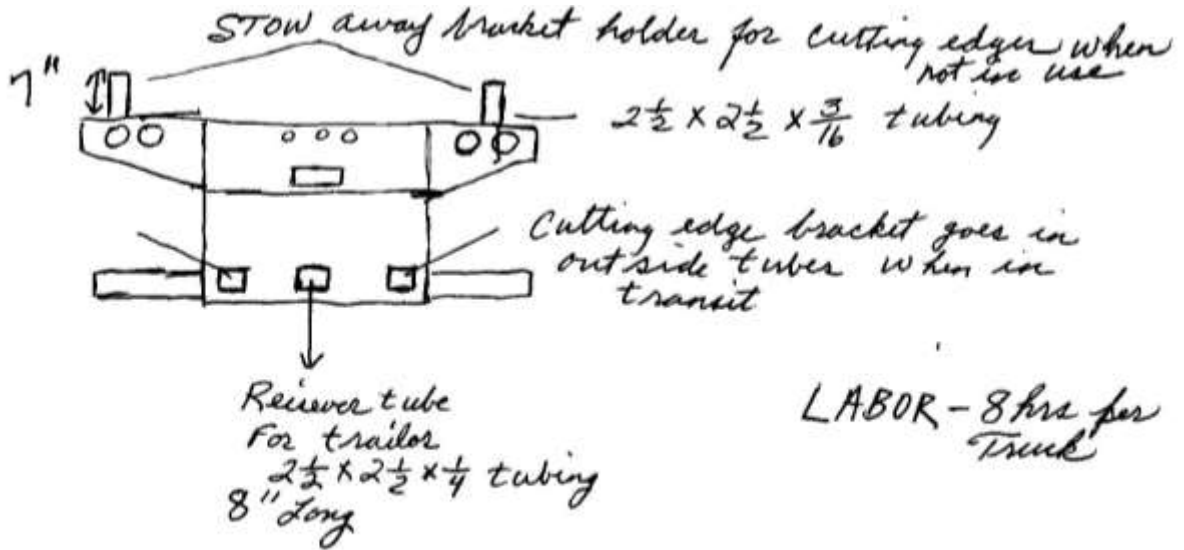 STOW away bracket holder for cutting edges when
not in use
7"
2 1/2 x 2 1/2 x 3/16 tubing
Cutting edge bracket goes in
outside tubes when in
transit
Reciever tube
For trailor
2 1/2 x 2 1/2 x 1/4 tubing
8" Long
LABOR - 8 hrs per
Truck